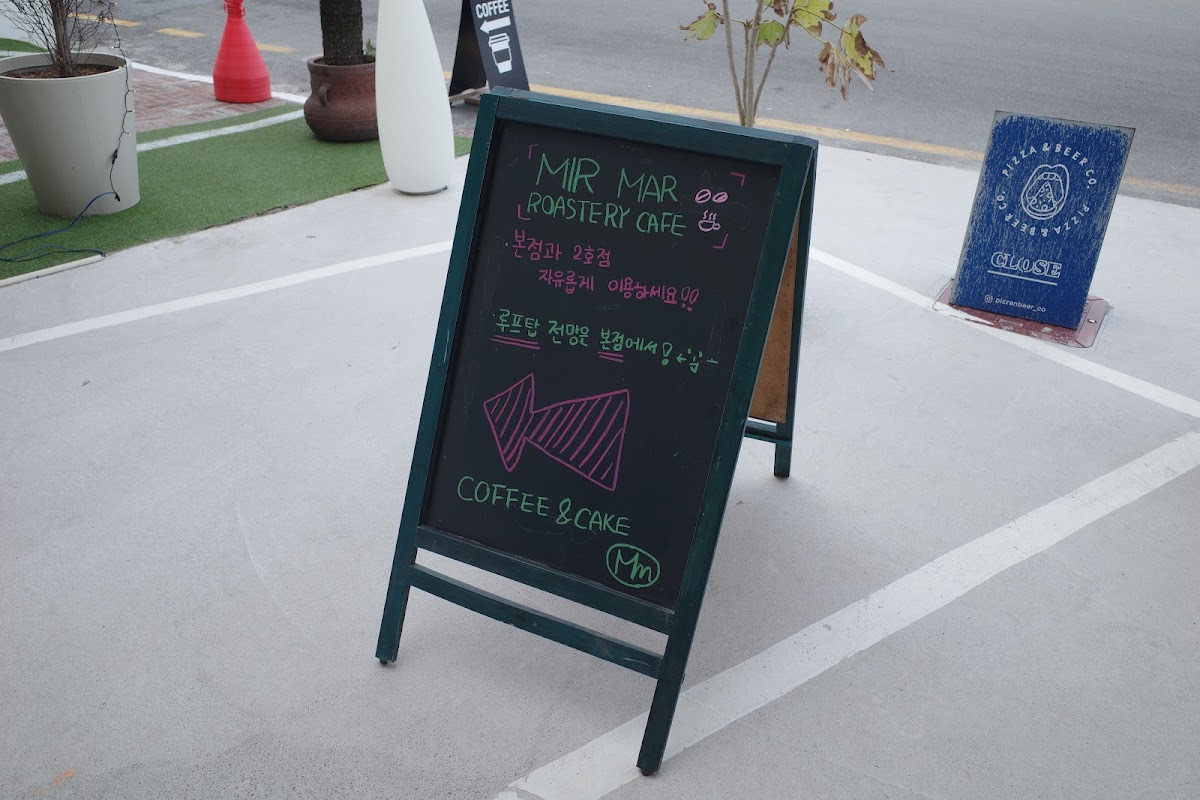 COFFEE
MIR MAR
ROASTERY CAFE
본점과 2호점
자유롭게 이용하세요!!
루프탑 전망은 본점에서!
COFFEE & CAKE
Mm
PIZZA & BEER CO. PIZZA & BEER CO.
CLOSE
pizzanbeer_co